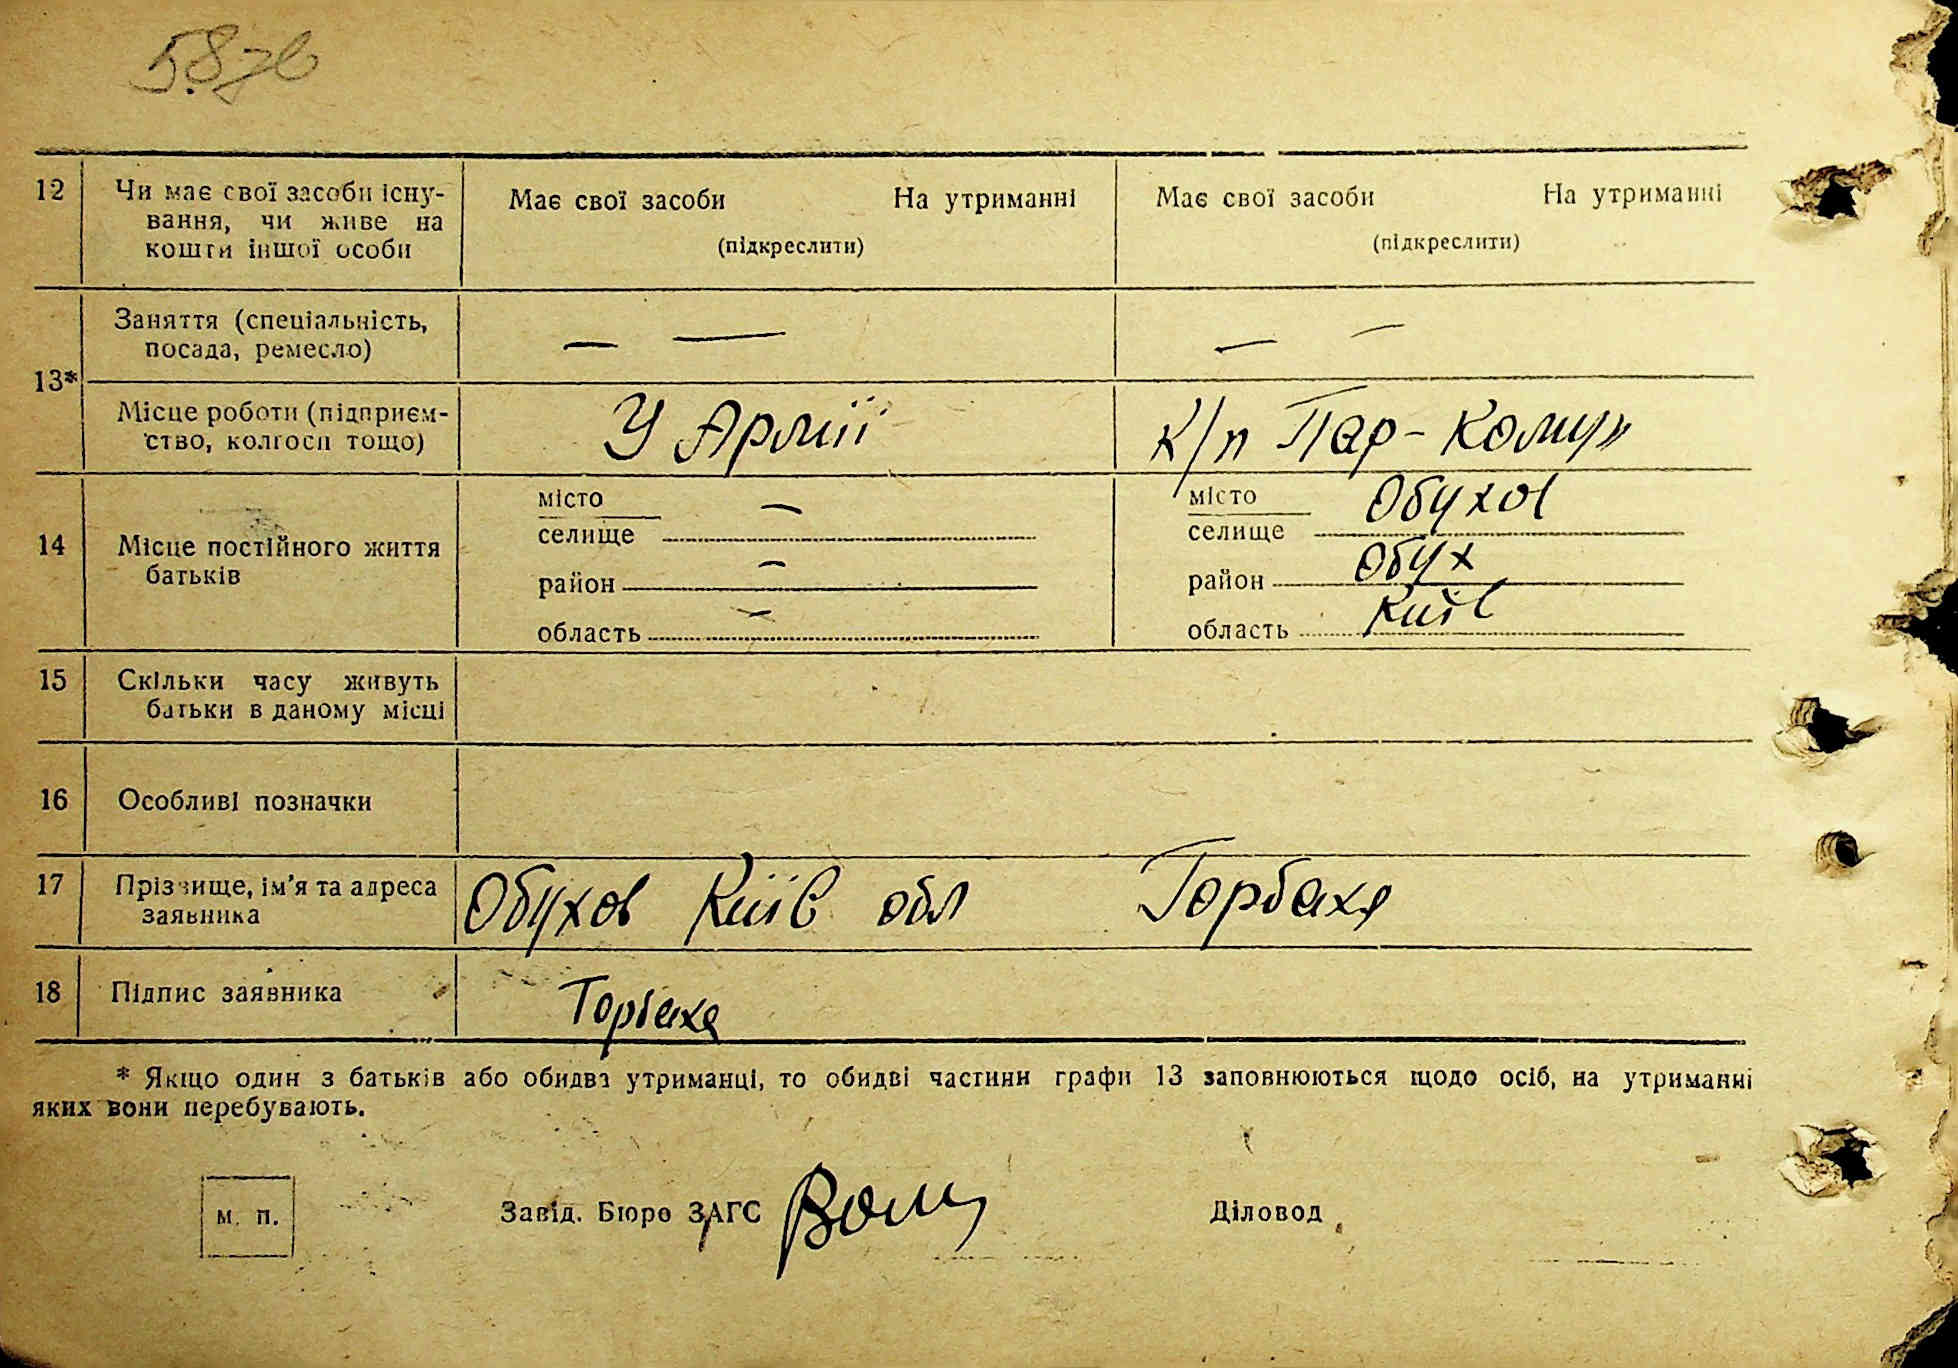 58 зв
12 Чи має свої засоби існу-
вання, чи живе на
кошти іншої особи
Має свої засоби На утриманні
(підкреслити)
Має свої засоби На утриманні
(підкреслити)
13*
Заняття (спеціальність,
посада, ремесло)
— —
— —
Місце роботи (підприєм-
ство, колгосп тощо)
У Армії
к/п Пар-Комун
14 Місце постійного життя
батьків
місто
селище —
район —
область —
місто
селище Обухов
район Обух
область Київ
15 Скільки часу живуть
батьки в даному місці
16 Особливі позначки
17 Прізвище, ім'я та адреса
заявника
Обухов Київ обл Горбаха
18 Підпис заявника
Горбаха
* Якщо один з батьків або обидва утриманці, то обидві частини графи 13 заповнюються щодо осіб, на утриманні
яких вони перебувають.
м. п.
Завід. Бюро ЗАГС
Діловод